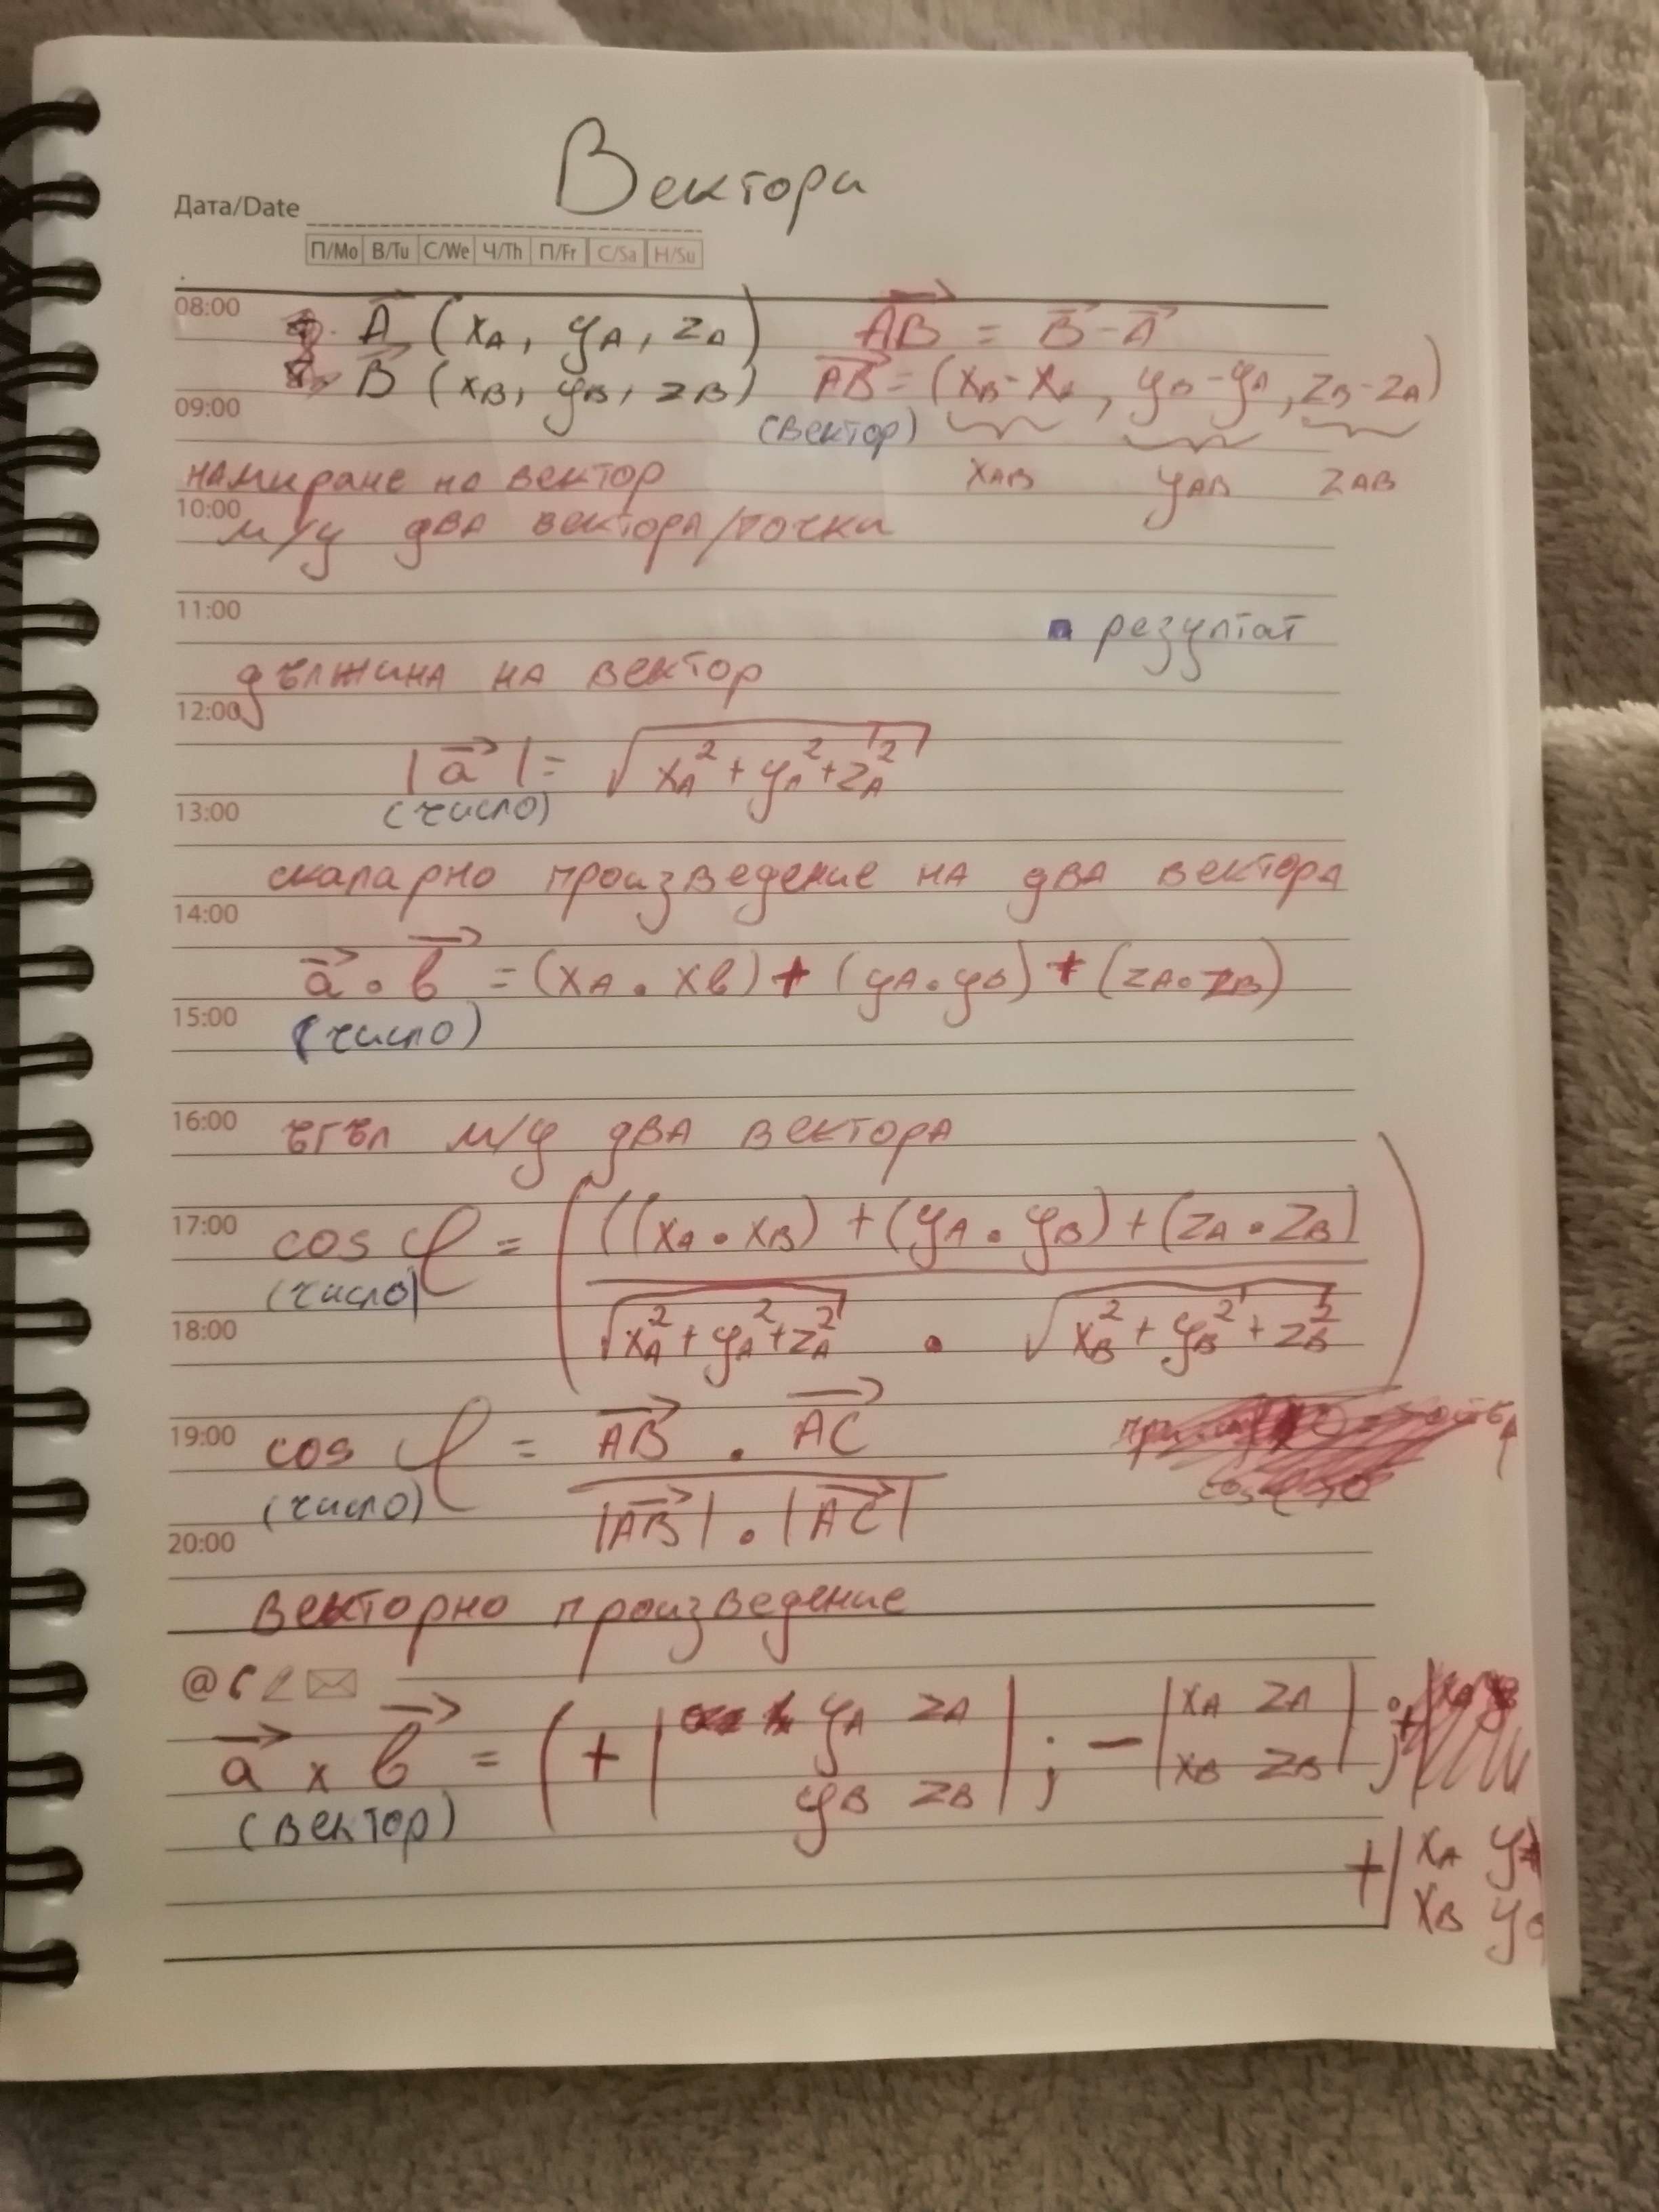 Вектори
Дата/Date
П/Mo В/Tu С/We Ч/Th П/Fr С/Sa Н/Su
08:00
A⃗ (xA, yA, zA) AB⃗ = B⃗ - A⃗
B⃗ (xB, yB, zB) AB⃗ = (xB - xA, yB - yA, zB - zA)
09:00
(вектор)
xAB yAB zAB
намиране на вектор
10:00
м/у два вектора/точки
11:00
резултат
дължина на вектор
12:00
|a⃗| = √(xA² + yA² + zA²)
13:00
(число)
скаларно произведение на два вектора
14:00
a⃗ . b⃗ = (xA . xb) + (yA . yB) + (zA . zB)
15:00
(число)
16:00
ъгъл м/у два вектора
17:00
cos φ = (((xA . xB) + (yA . yB) + (zA . zB)
(число)
18:00
√(xA² + yA² + zA²) . √(xB² + yB² + zB²))
19:00
cos φ = AB⃗ . AC⃗
(число)
|AB⃗| . |AC⃗|
20:00
векторно произведение
@
a⃗ x b⃗ = (+ | yA zA | ; - | xA zA | ; +
yB zB xB zB
(вектор)
+ | xA yA
xB yB